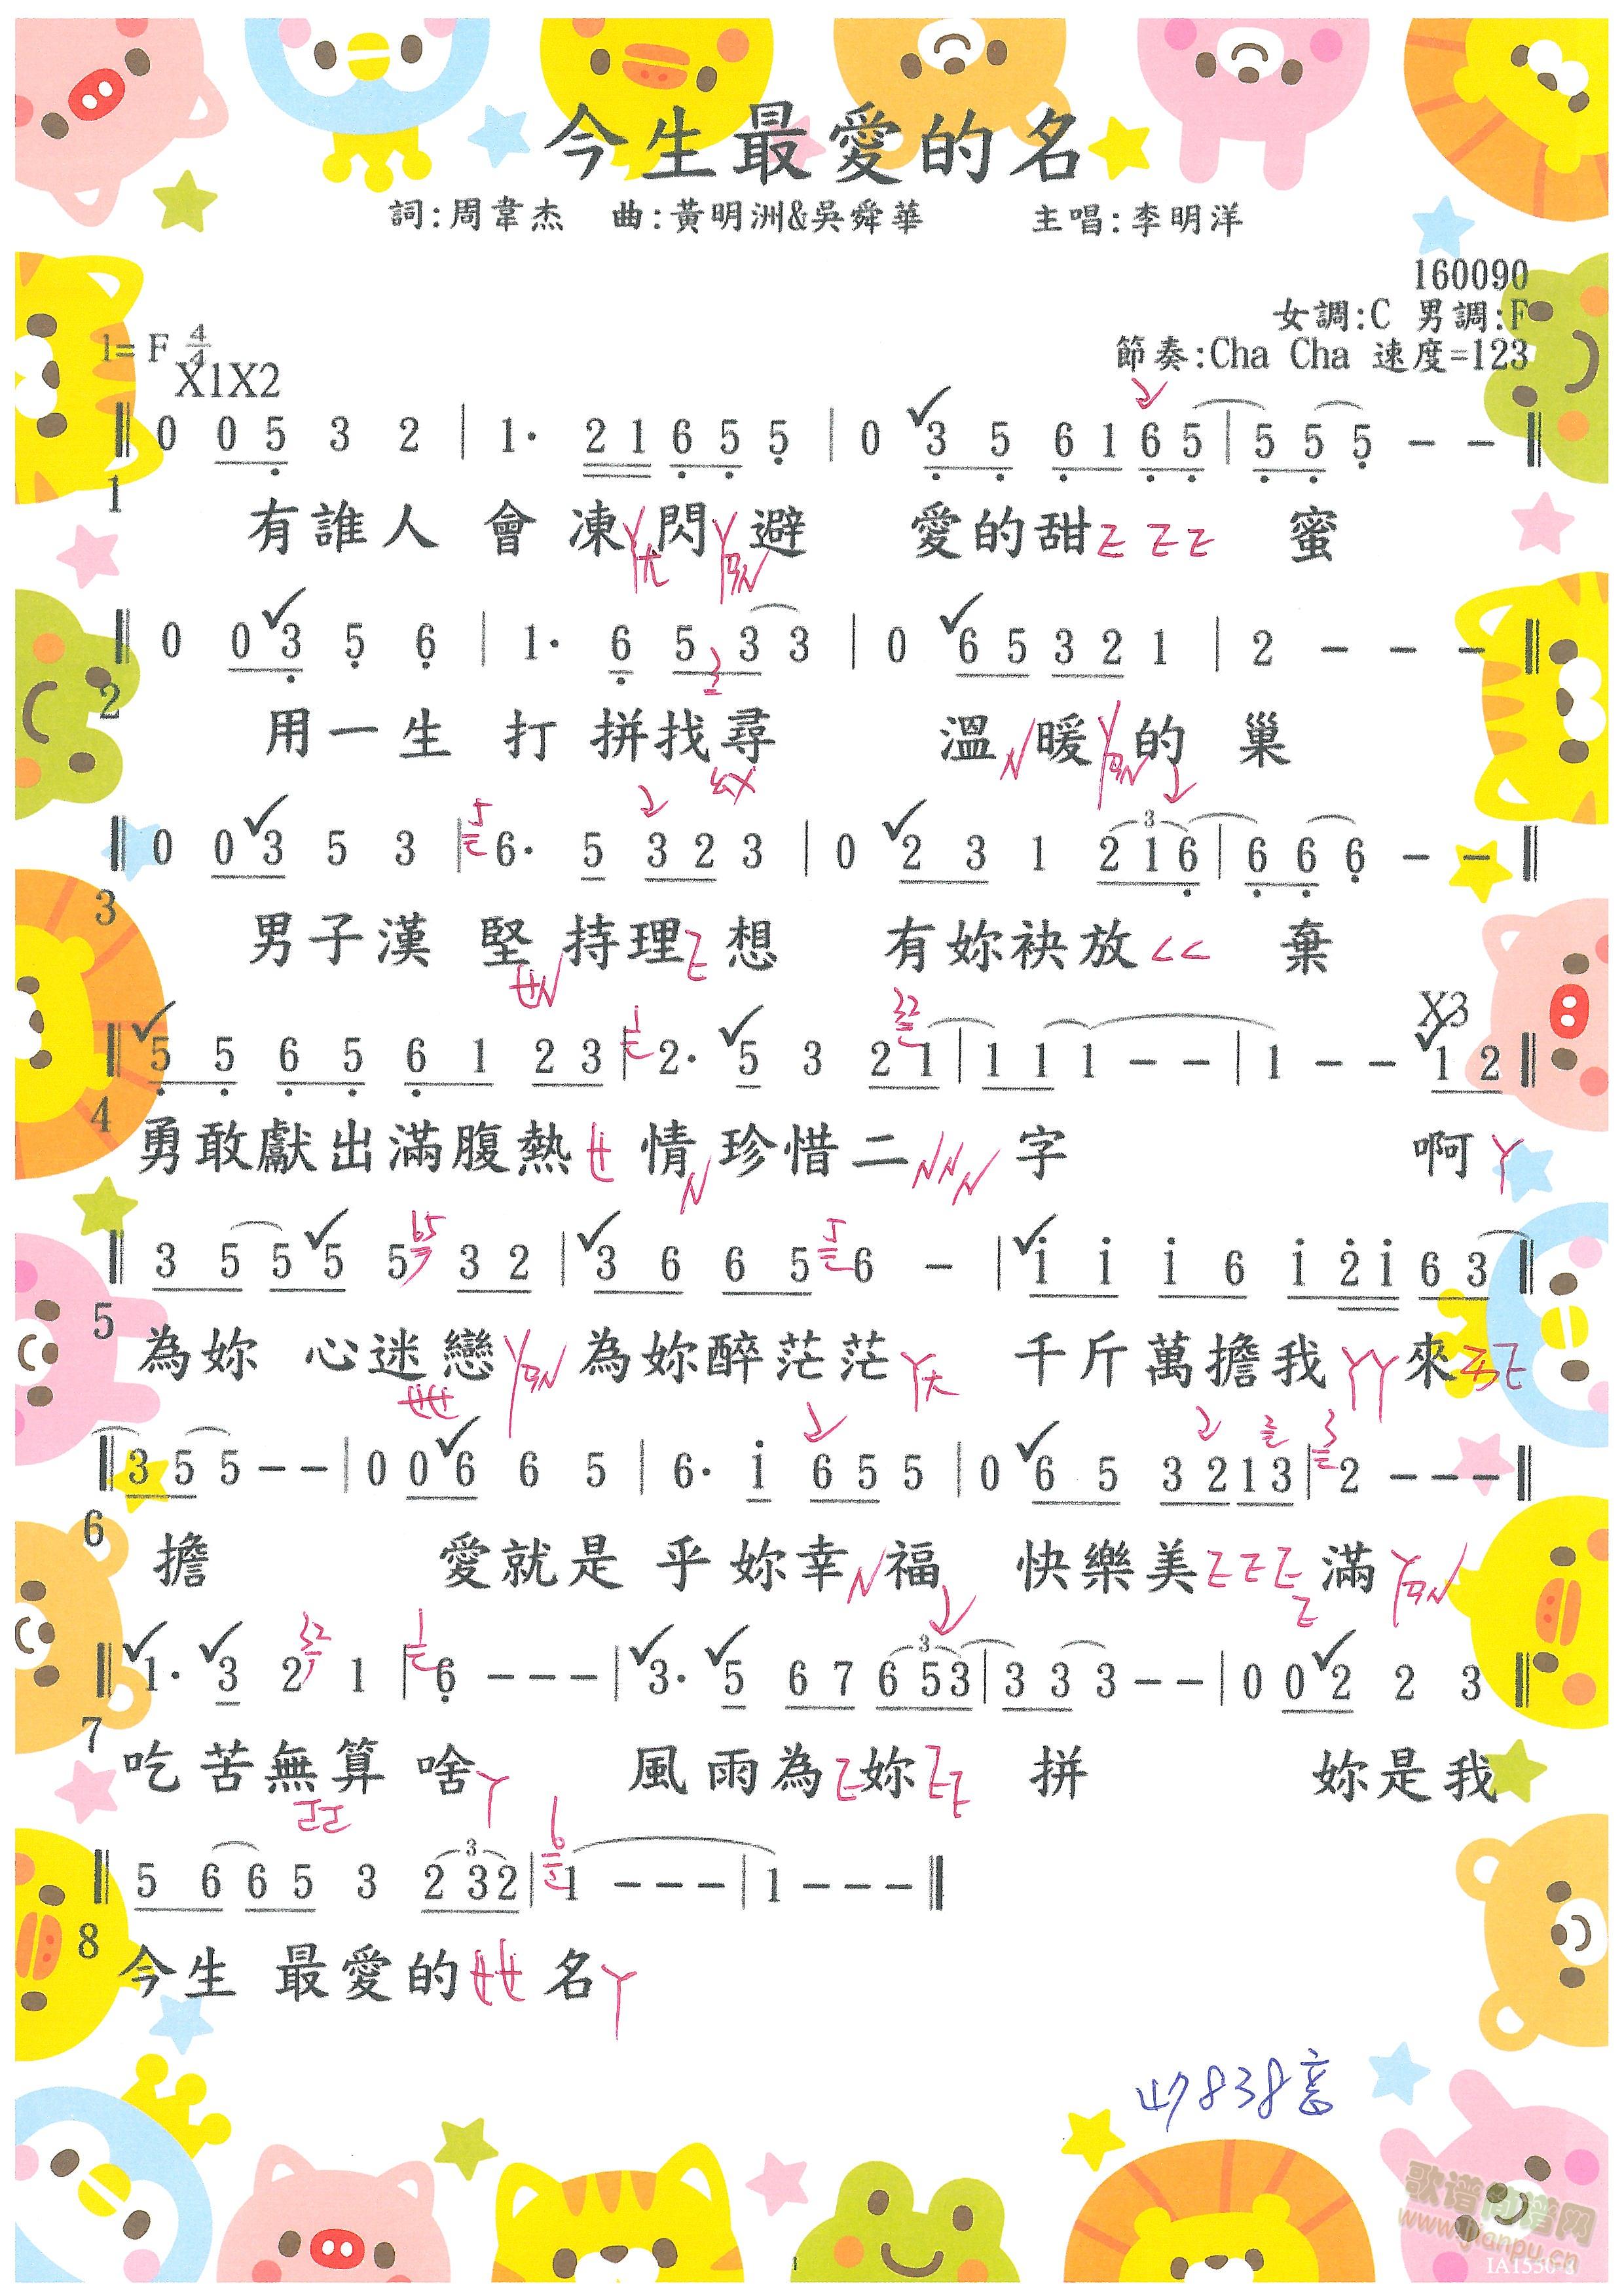 今生最愛的名
詞:周韋杰 曲:黃明洲&吳舜華 主唱:李明洋
160090
女調:C 男調:F
1= F 4/4 節奏:Cha Cha 速度=123
X1X2
0 0 5 3 2 | 1· 2 1 6 5 5 | 0 3 5 6 1 6 5 | 5 5 5 - -
1
有誰人 會 凍 ㄚ 閃 ㄚ 避 愛的甜 ㄛ ㄛ ㄛ 蜜
0 0 3 5 6 | 1· 6 5 3 3 | 0 6 5 3 2 1 | 2 - - -
3
2
用一生 打 拼找尋 溫 暖 ㄚ 的 巢
0 0 3 5 3 | 5 6· 5 3 2 3 | 0 2 3 1 2 1 6 | 6 6 6 - -
3
3
男子漢 堅 持理 想 有妳袂放 棄
X3
5 5 6 5 6 1 2 3 | 1 2· 5 3 2 32 1 | 1 1 1 - - | 1 - - 1 2
4
勇敢獻出滿腹熱 ㄝ 情 珍惜二 字 啊 ㄚ
3 5 5 5 5 65 3 2 | 3 6 6 5 5 6 - | i i i 6 i 2 i 6 3
5
為妳 心迷戀 為妳醉茫茫 千斤萬擔我 ㄚㄚ 來
3 5 5 - - | 0 0 6 6 5 | 6· i 6 5 5 | 0 6 5 3 2 1 3 | 3 2 - - -
6
擔 愛就是 乎 妳幸 福 快樂美 滿
1· 3 2 32 1 | 1 6 - - - | 3· 5 6 7 6 5 3 | 3 3 3 - - | 0 0 2 2 3
3
7
吃苦無算 啥 ㄚ 風雨為 妳 拼 妳是我
5 6 6 5 3 2 3 2 | 6 1 - - - | 1 - - -
3
8
今生 最愛的 ㄝㄝ 名 ㄚ
1
歌谱简谱网
www.jianpu.cn
IA1550-8